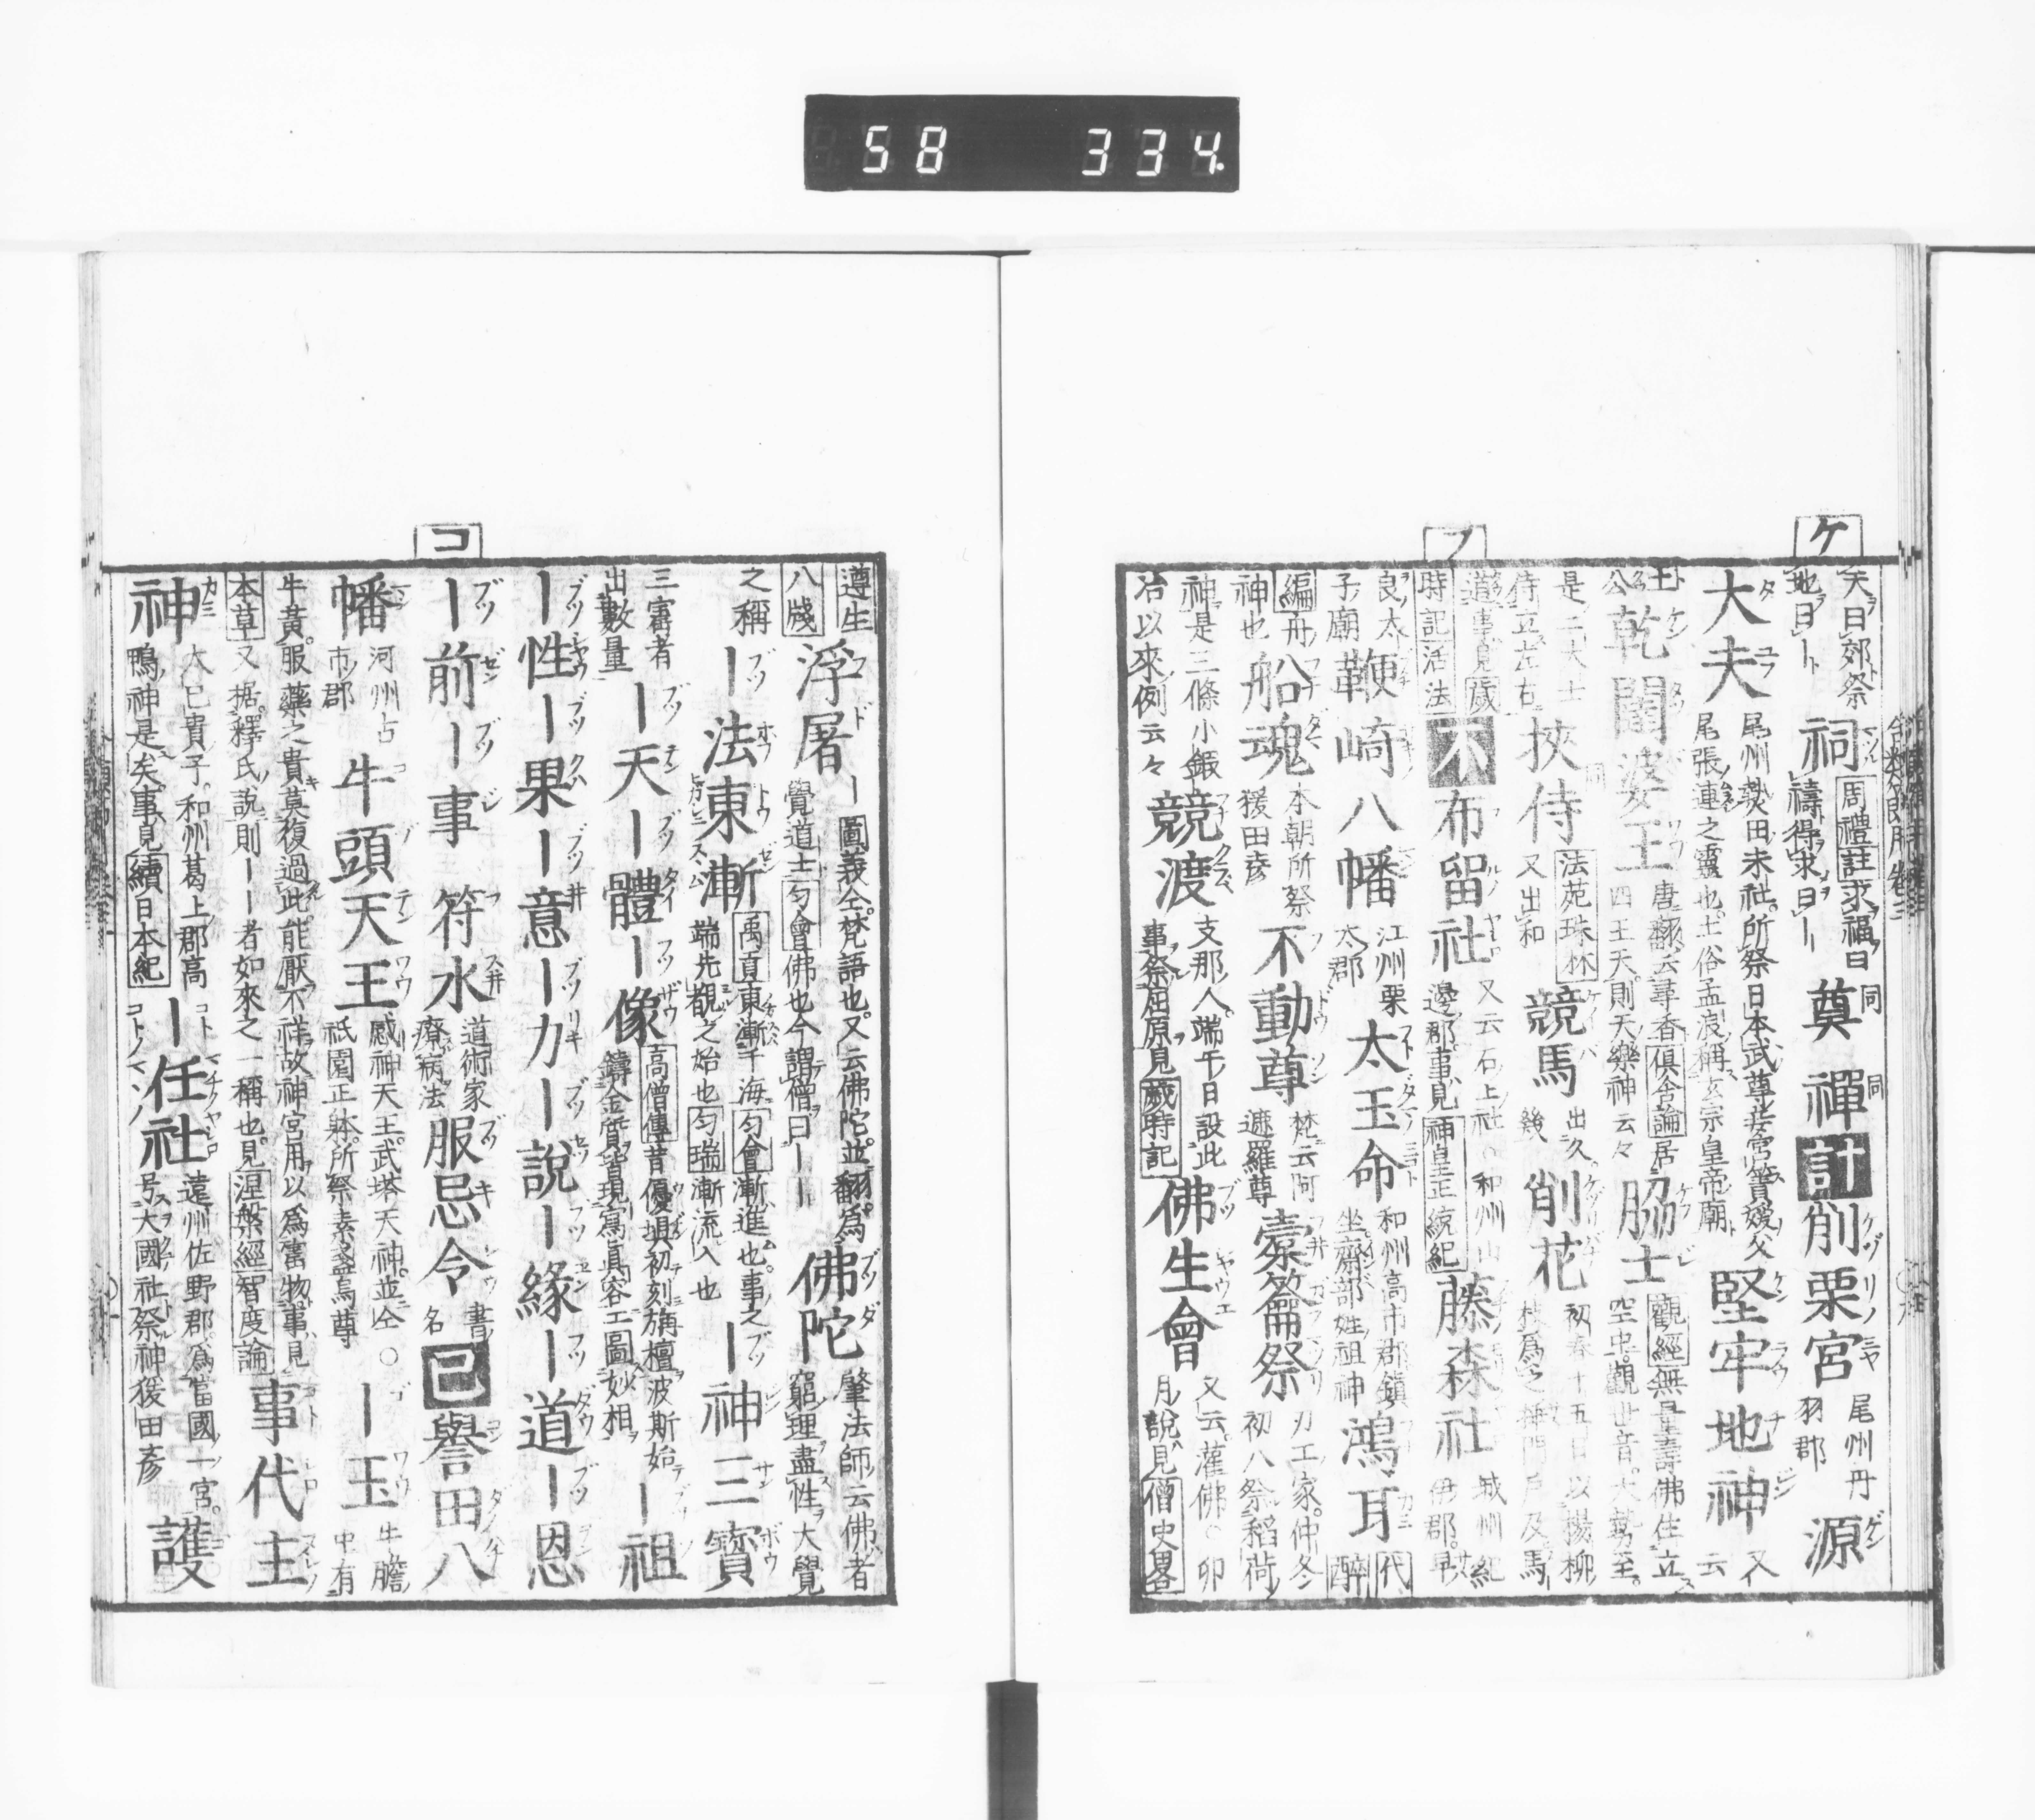 58 334
ケ
フ
天曰郊祭地曰ー祠周禮註求福曰禱得求曰ー奠禪計削栗宮尾州丹羽郡源
大夫尾州熱田末社所祭日本武尊妾宮簀媛父尾張連之靈也土俗孟浪稱玄宗皇帝廟堅牢地神又云
乾闥婆王唐翻云尋香俱舍論居四王天則天樂神云々脇士觀經無量壽佛住立空中觀世音大勢至
是二大士侍立左右挾侍法苑珠林又出和競馬出久幾削花初春十五日以楊柳枝爲之挿門戶及馬
事見歲時記活法不布留社又云石上社○和州山邊郡事見神皇正統紀藤森社城州紀伊郡早
良太子廟鞭崎八幡江州栗太郡太玉命和州高市郡鎮坐齋部姓祖神鴻耳代醉
編舟神也船魂本朝所祭猨田彥不動尊梵云阿遮羅尊橐籥祭刃工家仲冬初八祭稻荷
神是三條小鍛冶以來例云々競渡支那人端午日設此事祭屈原見歲時記佛生會又云灌佛○卯月說見僧史畧
コ
遵生八牋浮屠ー圖義仝梵語也又云佛陀並翻爲覺道士勻會佛也今謂僧曰ーー佛陀肇法師云佛者窮理盡性大覺
之稱ー法東漸禹貢東漸于海勻會漸進也事之端先覩之始也勻瑞漸流入也ー神三寶
三審者出數量ー天ー體ー像高僧傳昔優塡初刻旃檀波斯始鑄金質皆現寫眞容工圖妙相ー祖
ー性ー果ー意ー力ー說ー緣ー道ー恩
ー前ー事符水道術家療病法服忌令書名己譽田八
幡河州古市郡牛頭天王感神天王武塔天神並仝○祇園正躰所祭素盞烏尊ー玉牛膽中有
牛黃服藥之貴莫復過此能厭不祥故神宮用以爲富物事見本草又据釋氏說則ーー者如來之一稱也見涅槃經智度論事代主
神大己貴子和州葛上郡高鴨神是矣事見續日本紀ー任社遠州佐野郡爲當國一宮号大國社祭神猨田彥護